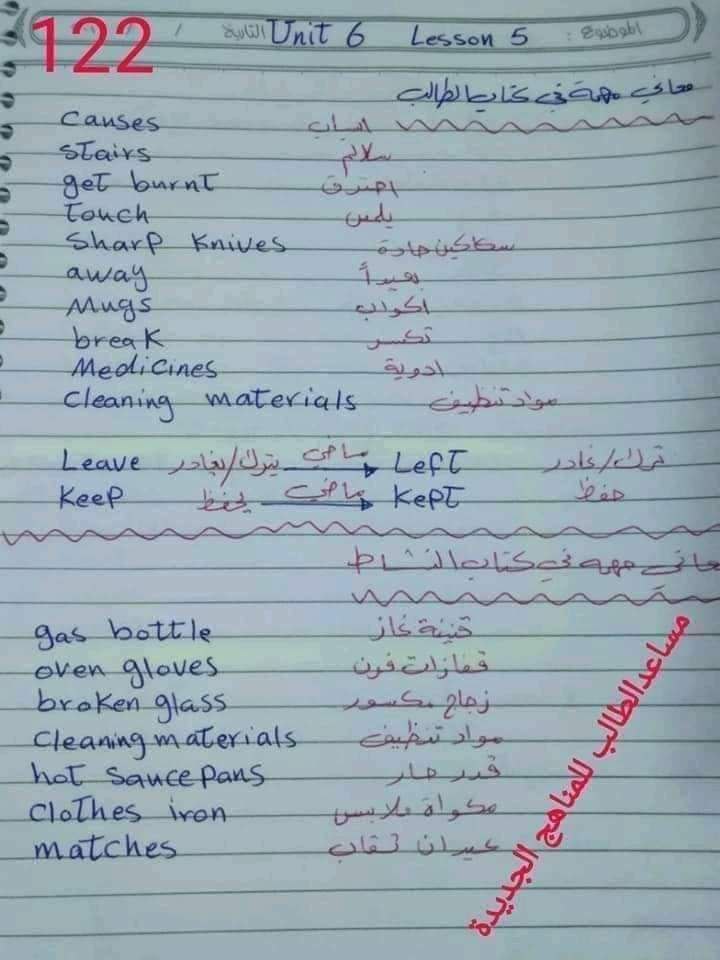 122
الثانية / Unit 6 Lesson 5 الموضوع :
معاني مهمة في كتاب الطالب
Causes اسباب
Stairs سلالم
get burnt احترق
Touch يلمس
Sharp Knives سكاكين حادة
away بعيداً
Mugs اكواب
break تكسر
Medicines ادوية
Cleaning materials مواد تنظيف
Leave يترك/يغادر ماضي Left ترك/غادر
Keep يحفظ ماضي Kept حفظ
معاني مهمه في كتاب النشاط
gas bottle قنينة غاز
oven gloves قفازات فرن
broken glass زجاج مكسور
Cleaning materials مواد تنظيف
hot saucepans قدر حار
Clothes iron مكواة ملابس
matches عيدان ثقاب
مساعد الطالب للمناهج الجديدة